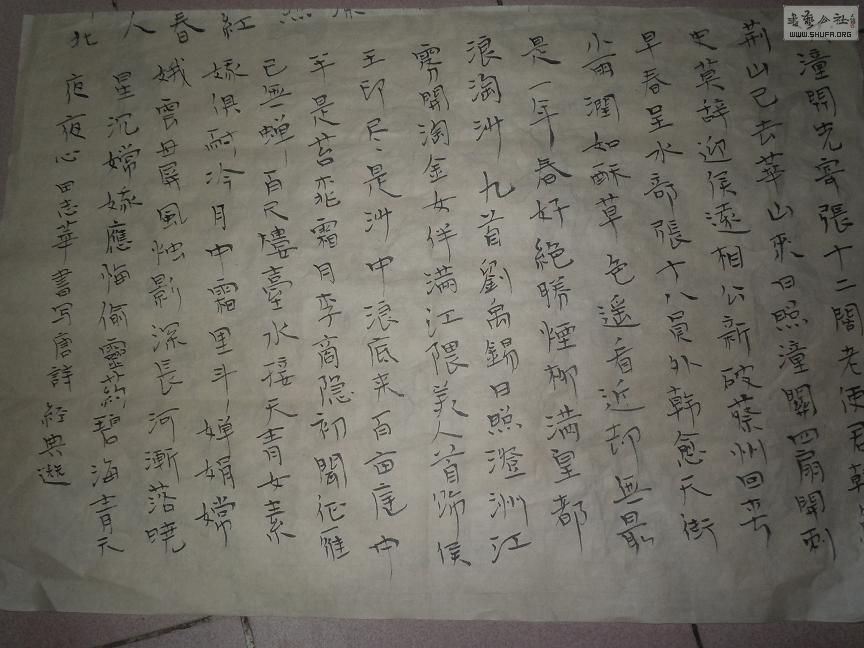 潼關先寄張十二閣老使君韓
荆山已去華山來日照潼關四扇開刺
史莫辞迎侯遠相公新破蔡州回
早春呈水部張十八員外韓愈天街
小雨潤如酥草色遥看近却無最
是一年春好絶勝煙柳滿皇都
浪淘沙九首劉禹錫日照澄洲江
霧開淘金女伴滿江隈美人首飾侯
王印尽是沙中浪底来百亩庭中
半是苔花霜月李商隐初聞征雁
已無蝉百尺楼臺水接天青女素
娥俱耐冷月中霜里斗婵娟嫦
娥雲母屏風烛影深長河漸落曉
星沉嫦娥應悔偷靈药碧海青天
夜夜心田志華書写唐詩經典選
紅春人北
書藝公社
WWW.SHUFA.ORG